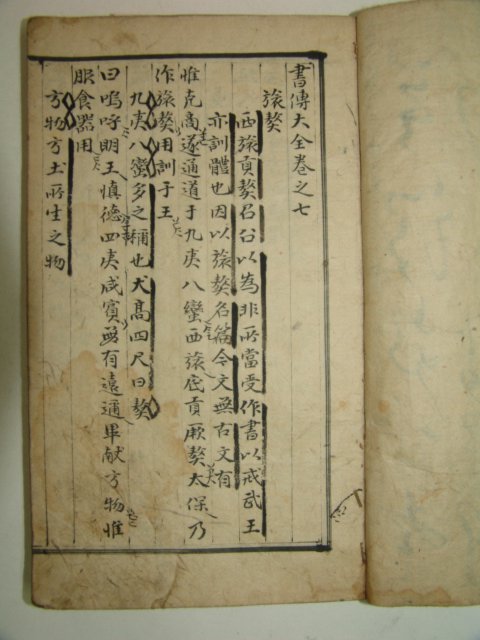 書傳大全卷之七
旅獒
西旅貢獒召公以為非所當受作書以戒武王
亦訓體也因以旅獒名篇今文無古文有
惟克商遂通道于九夷八蠻西旅底貢厥獒太保乃
作旅獒用訓于王
九夷八蠻多之稱也犬高四尺曰獒
曰嗚呼明王慎德四夷咸賓無有遠邇畢献方物惟
服食器用
方物方土所生之物